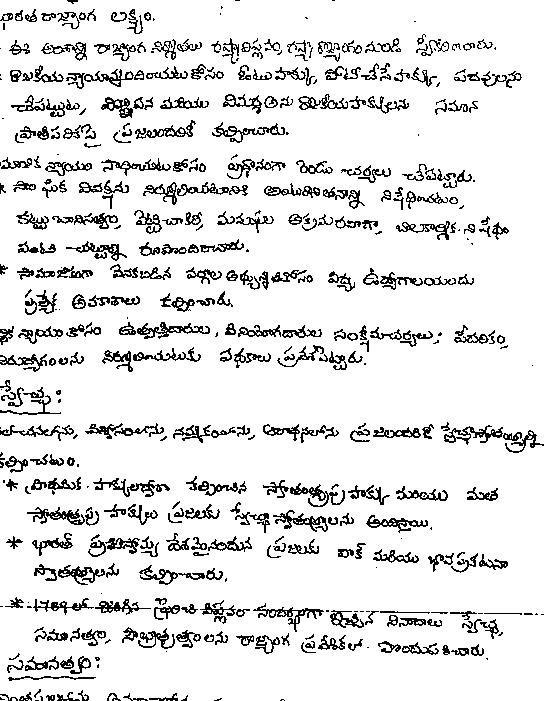 భారత రాజ్యాంగ లక్ష్యం.
- ఈ అంశాన్ని రాజ్యాంగ నిర్మాతలు రష్యా విప్లవం, రష్యా రాజ్యాంగం నుండి స్వీకరించారు.
- రాజకీయ న్యాయాన్నందించుటకోసం ఓటుహక్కు, పోటీచేసే హక్కు, పదవులను
చేపట్టుట, విజ్ఞాపన మరియు విమర్శ అను రాజకీయహక్కులను సమాన
ప్రాతిపదికపై ప్రజలందరికీ కల్పించారు.
సామాజిక న్యాయం సాధించుటకోసం ప్రధానంగా రెండు చర్యలు చేపట్టారు.
* సాంఘిక వివక్షను నిర్మూలించుటకు అంటరానితనాన్ని నిషేధించటం,
కట్టు బానిసత్వం, వెట్టిచాకిరి, మనుషుల అక్రమరవాణా, బాలకార్మిక నిషేధం
వంటి చట్టాల్ని రూపొందించారు.
* సామాజికంగా వెనకబడిన వర్గాల అభ్యున్నతికోసం విద్య, ఉద్యోగాలయందు
ప్రత్యేక అవకాశాలు కల్పించారు.
ర్థిక న్యాయం కోసం ఉత్పత్తిదారులు, వినియోగదారుల సంక్షేమచర్యలు; పేదరికం,
నిరుద్యోగంలను నిర్మూలించుటకు పథకాలు ప్రవేశపెట్టారు.
స్వేచ్ఛ:
ఆలోచనలోను, విశ్వాసంలోను, నమ్మకంలోను, ఆరాధనలోను ప్రజలందరికీ స్వేచ్ఛాస్వాతంత్య్రాన్ని
కల్పించటం.
* ప్రాథమిక హక్కులద్వారా కల్పించిన స్వాతంత్య్రపు హక్కు మరియు మత
స్వాతంత్య్రపు హక్కులు ప్రజలకు స్వేచ్ఛా స్వాతంత్య్రాలను అందిస్తాయి.
* భారత్ ప్రజాస్వామ్య దేశమైనందున ప్రజలకు వాక్ మరియు భావప్రకటనా
స్వాతంత్య్రాలను కల్పించారు.
* 1789 లో జరిగిన ఫ్రెంచి విప్లవం సందర్భంగా ఇచ్చిన నినాదాలు స్వేచ్ఛ,
సమానత్వం, సౌభ్రాతృత్వంలను రాజ్యాంగ ప్రవేశికలో పొందుపరిచారు.
సమానత్వం: